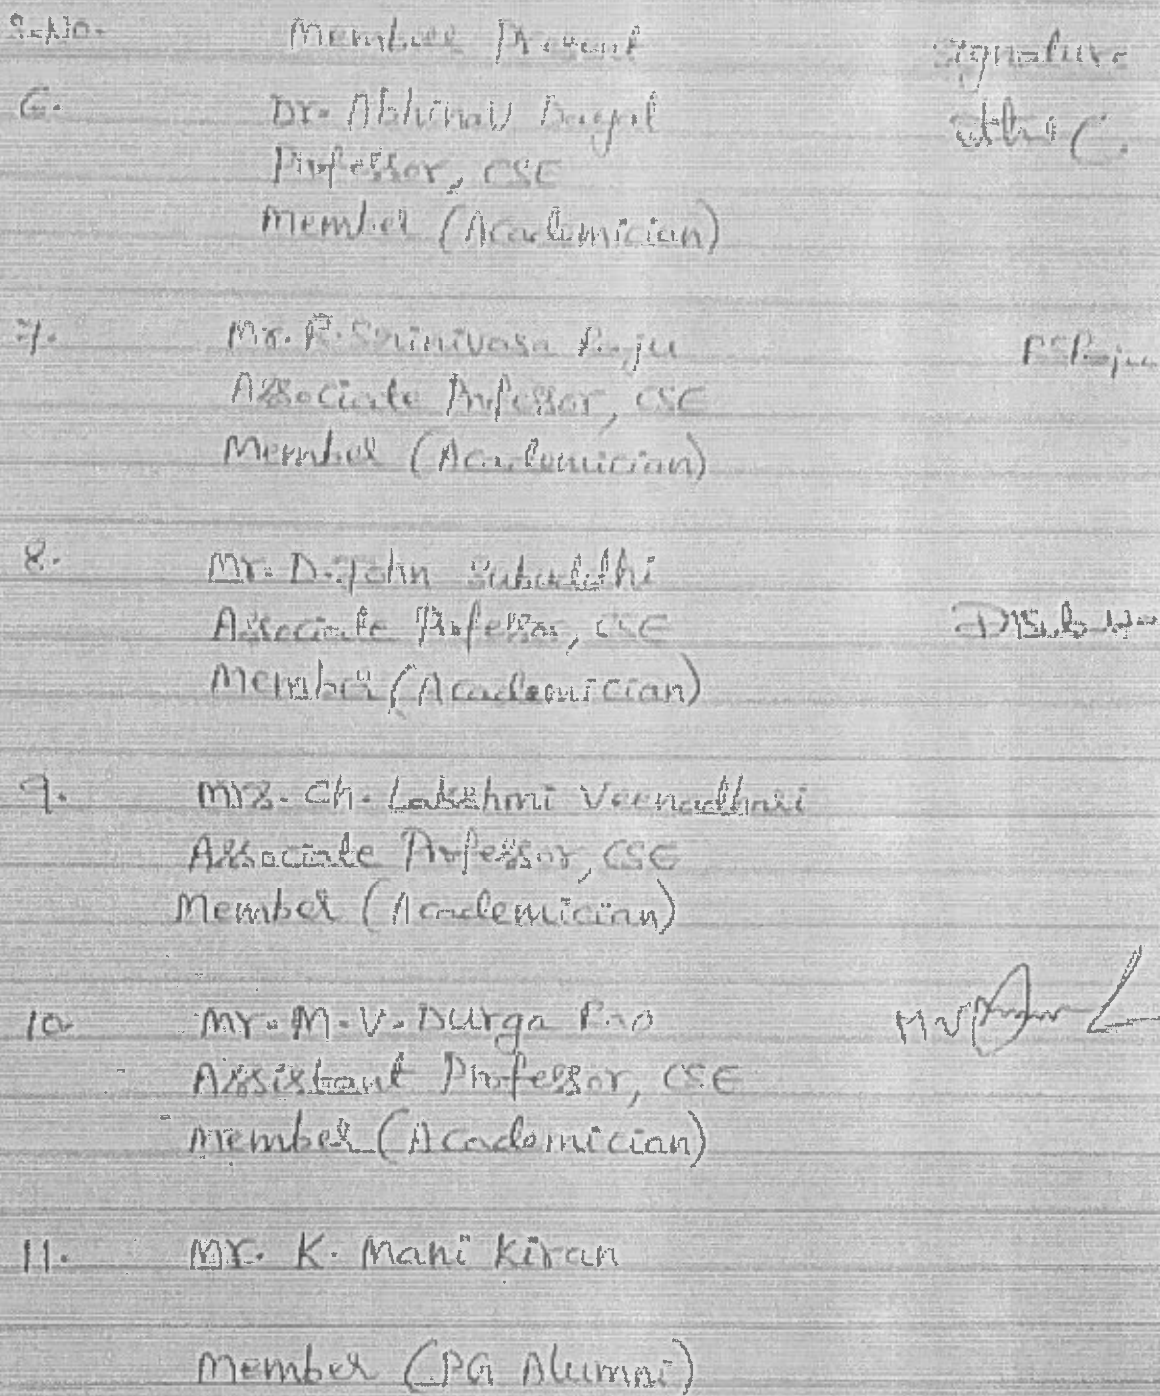 S.No. Member Present Signature
6. Dr. Abhinav Dayal
Professor, CSE
Member (Academician)
7. Mr. R. Srinivasa Raju RSRaju
Associate Professor, CSE
Member (Academician)
8. Mr. D. John Subuddhi
Associate Professor, CSE
Member (Academician)
9. Mrs. Ch. Lakshmi Veenadhari
Associate Professor, CSE
Member (Academician)
10. Mr. M. V. Durga Rao
Assistant Professor, CSE
Member (Academician)
11. Mr. K. Mani Kiran
Member (PG Alumni)